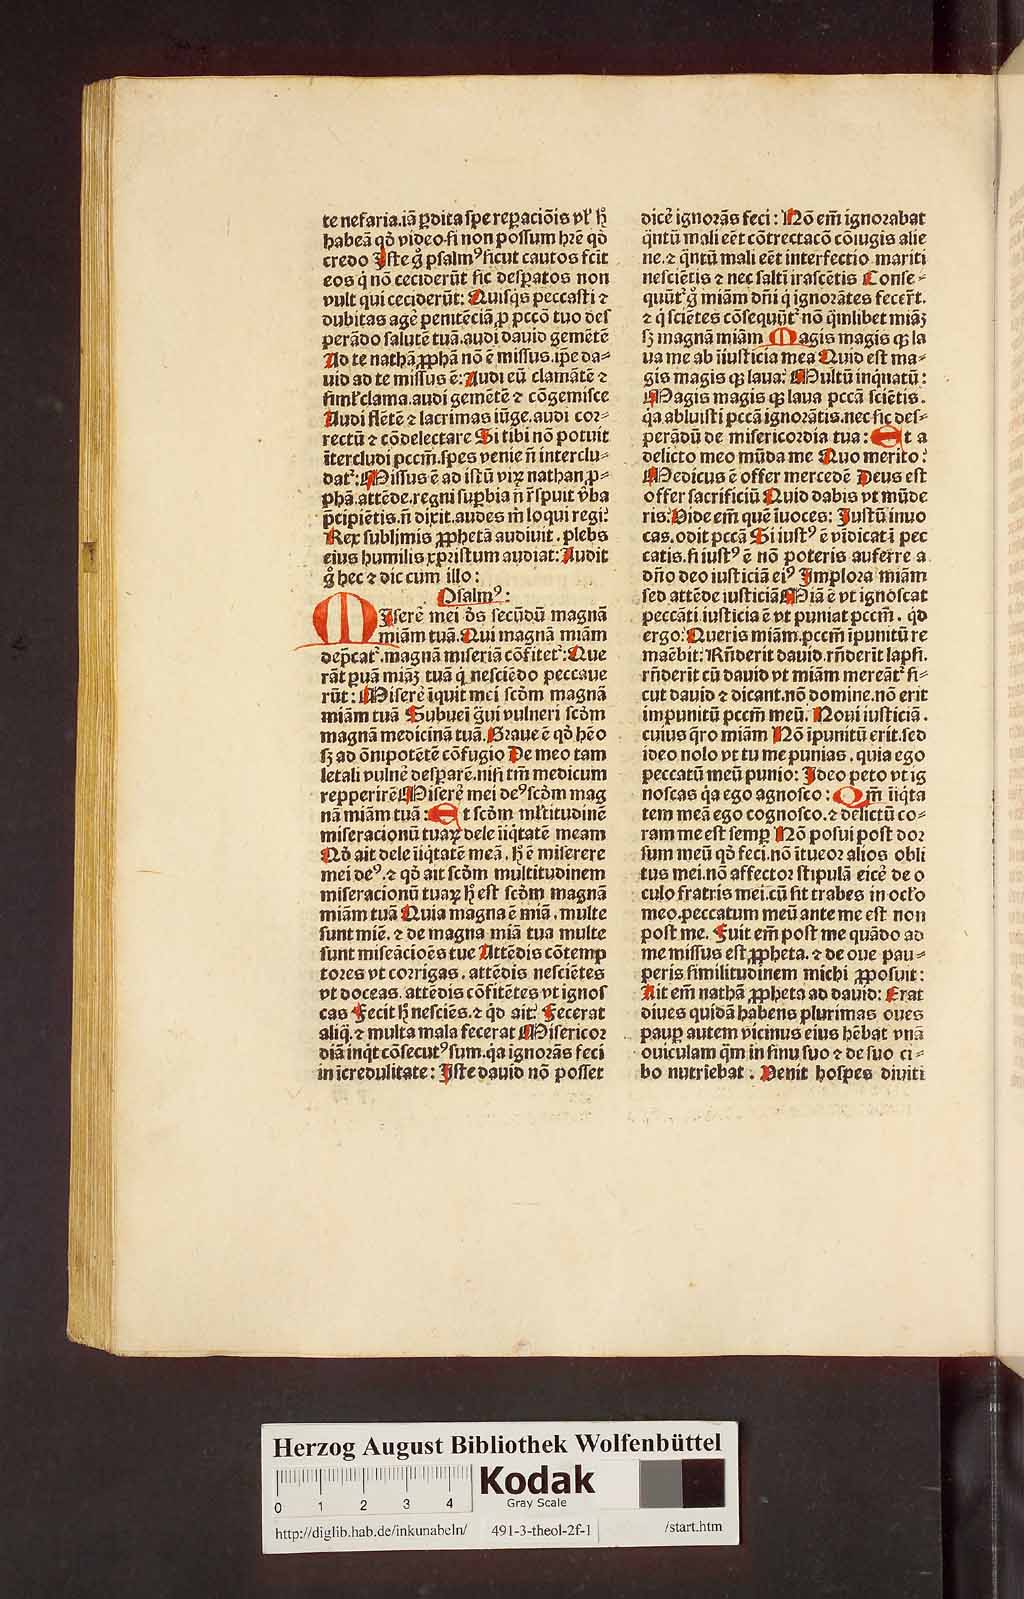 te nefaria.iā ꝑdita ſpe reꝑaciōis vl' ꝑ
habeā qđ video.ſi non poſſum hr̄e qđ
credo Iſte g̊ pſalm⁹ ſicut cautos fcit
eos q̇ nō ceciderūt ſic deſꝑatos non
vult qui ceciderūt: Quiſqs peccaſti ⁊
dubitas agē penitēciā ꝓ pccō tuo deſ
perādo ſalutē tuā.audi dauid gemētē
Ad te nathā ꝓphā nō ē miſſus.ip̄e da⸗
uid ad te miſſus ē: Audi eū clamātē ⁊
ſiml'clama.audi gemētē ⁊ cōgemiſce
Audi flētē ⁊ lacrimas iūge.audi cor⸗
rectū ⁊ cōdelectare Si tibi nō potuit
ītercludi pccm̄.ſpes venie n̄ interclu⸗
dat᷑: Miſſus ē ad iſtū virꝫ nathan ꝓ⸗
phā.attēde.regni ſuꝑbia n̄ r̄ſpuit v̄ba
p̄cipiētis.n̄ dixit.audes m̄ loqui regi:
Rex ſublimis ꝓphetā audiuit. plebs
eius humilis xpriſtum audiat: Audit
g̊ hec ⁊ dic cum illo:
Pſalm⁹:
MIſerē mei ds̄ ſecūdū magnā
miām tuā.Qui magnā miām
dep̄cat᷑.magnā miſeriā cōfitet᷑: Que
rāt ꝑuā miāꝫ tuā q̇ neſciēdo peccaue
rūt: Miſerē īquit mei ſcđm magnā
miām tuā Subuei g̈ui vulneri ſcđm
magnā medicinā tuā. Graue ē qđ hēo
ſꝫ ad ōnipotētē cōfugio De meo tam
letali vulnē deſꝑarē.niſi tm̄ medicum
repperirē Miſerē mei de⁹ ſcđm mag
nā miām tuā: Et ſcđm ml'titudinē
miſeracionū tuaꝝ dele īiq̇tatē meam
Qđ ait dele īiq̇tatē meā. ꝑ ē miſerere
mei de⁹.⁊ qđ ait ſcđm multitudinem
miſeracionū tuaꝝ ꝑ eſt ſcđm magnā
miām tuā Quia magna ē miā. multe
ſunt miē. ⁊ de magna miā tua multe
ſunt miſeācioēs tue Attēdis cōtemp
tores vt corrigas. attēdis neſciētes
vt doceas. attēdis cōfitētes vt ignoſ
cas Fecit ꝑ neſciēs.⁊ qđ ait: Fecerat
aliq̇.⁊ multa mala fecerat Miſericor
diā inq̇t cōſecut⁹ ſum.q̇a ignorās feci
in īcredulitate: Iſte dauid nō poſſet
dicē ignorās feci: Nō em̄ ignorabat
q̇ntū mali eēt cōtrectacō cōiugis alie
ne.⁊ q̇ntū mali eēt interfectio mariti
neſciētis ⁊ nec ſaltī iraſcētis Conſe⸗
quūt᷑ g̊ miām dn̄i q̇ ignorātes fecer̄t.
⁊ q̇ ſciētes cōſequūt᷑ nō q̇mlibet miāꝫ
ſꝫ magnā miām Magis magis qꝫ la
ua me ab īiuſticia mea Quid eſt ma⸗
gis magis qꝫ laua: Multū inq̇natū:
Magis magis qꝫ laua pccā ſciētis.
q̇a abluiſti pccā ignorātis.nec ſic deſ⸗
perādū de miſericordia tua: Et a
delicto meo mūda me Quo merito:
Medicus ē offer mercedē Deus eſt
offer ſacrificiū Quid dabis vt mūde
ris: Vide em̄ quē īuoces: Iuſtū inuo
cas.odit pccā Si iuſt⁹ ē vīdicat ī pec
catis.ſi iuſt⁹ ē nō poteris auferre a
dn̄o deo iuſticiā ei⁹ Implora miām
ſed attēde iuſticiā Miā ē vt ignoſcat
peccāti.iuſticia ē vt puniat pccm̄. qđ
ergo: Queris miām.pccm̄ īpunitū re
maēbit: Rn̄derit dauid.rn̄derīt lapſi.
rn̄derit cū dauid vt miām mereāt᷑ ſi⸗
cut dauid ⁊ dicant.nō domine.nō erit
impunitū pccm̄ meū. Noui iuſticiā.
cuius q̄ro miām Nō īpunitū erit.ſed
ideo nolo vt tu me punias. quia ego
peccatū meū punio: Ideo peto vt ig
noſcas q̇a ego agnoſco: Qm̄ īiq̇ta
tem meā ego cognoſco.⁊ delictū co⸗
ram me eſt ſemꝑ Nō poſui poſt dor
ſum meū qđ feci.nō ītueor alios obli
tus mei.nō affector ſtipulā eicē de o
culo fratris mei.cū ſit trabes in ocl'o
meo.peccatum meū ante me eſt non
poſt me. Fuit em̄ poſt me quādo ad
me miſſus eſt ꝓpheta. ⁊ de oue pau⸗
peris ſimilitudinem michi ꝓpoſuit:
Ait em̄ nathā ꝓpheta ad dauid: Erat
diues quidā habens plurimas oues
pauꝑ autem vicinus eius hēbat vnā
ouiculam q̄m in ſinu ſuo ⁊ de ſuo ci⸗
bo nutriebat. Venit hoſpes diuiti
Herzog August Bibliothek Wolfenbüttel
0 1 2 3 4
Kodak
Gray Scale
http://diglib.hab.de/inkunabeln/ 491-3-theol-2f-1 /start.htm